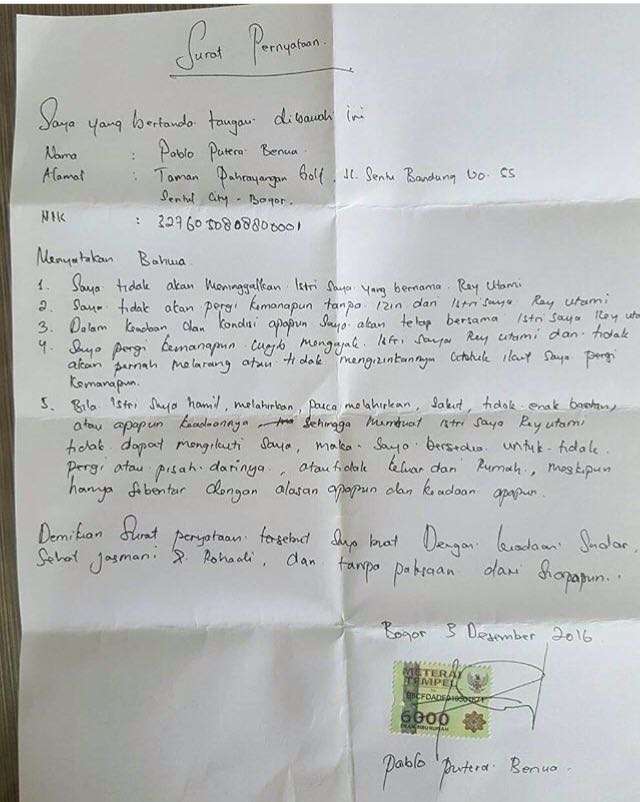 Surat Pernyataan.
Saya yang bertanda tangan dibawah ini
Nama : Pablo Putera Benua.
Alamat : Taman Pahrayangan Golf, Jl. Sentu Bandung No. 55
Sentul City - Bogor.
NIK : 3276050808800001
Menyatakan Bahwa
1. Saya tidak akan Meninggalkan Istri Saya yang bernama Rey Utami
2. Saya tidak akan pergi kemanapun tanpa izin dari Istri saya Rey Utami
3. Dalam keadaan dan kondisi apapun Saya akan tetap bersama Istri Saya Rey Uta
4. Saya pergi kemanapun wajib mengajak Istri saya Rey Utami dan tidak
akan pernah melarang atau tidak mengizinkannya untuk ikut Saya pergi
Kemanapun.
5. Bila Istri Saya hamil, melahirkan, pasca melahirkan, sakit, tidak enak badan,
atau apapun keadaannya Sehingga Membuat Istri Saya Rey utami
tidak dapat mengikuti Saya, maka Saya bersedia untuk tidak
pergi atau pisah darinya, atau tidak keluar dari Rumah, meskipun
hanya Sebentar dengan alasan apapun dan keadaan apapun.
Demikian Surat peryataan tersebut Saya buat Dengan keadaan Sadar,
Sehat jasmani & Rohani, dan tanpa paksaan dari Siapapun..
Bogor 3 Desember 2016
METERAI
TEMPEL
6000
ENAM RIBU RUPIAH
Pablo Putera Benua.